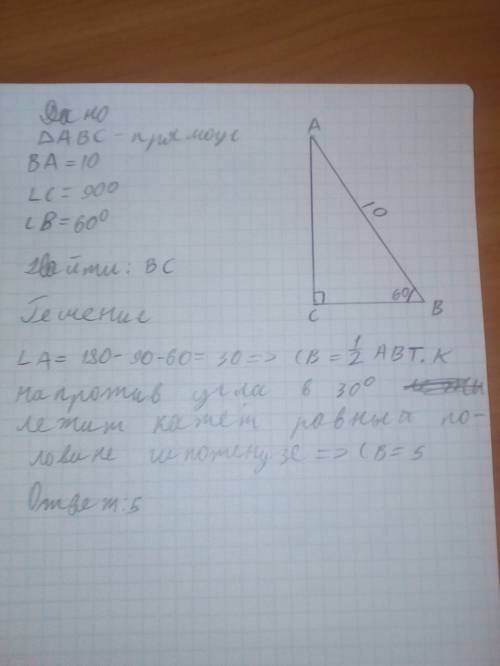 Дано
ΔABC - прямоуг
BA = 10
∠C = 90°
∠B = 60°
Найти: BC
Решение
∠A = 180 - 90 - 60 = 30 => CB = 1/2 AB Т. К
напротив угла в 30°
лежит катет равный по-
ловине гипотенузе => CB = 5
Ответ: 5
A
10
60
C
B